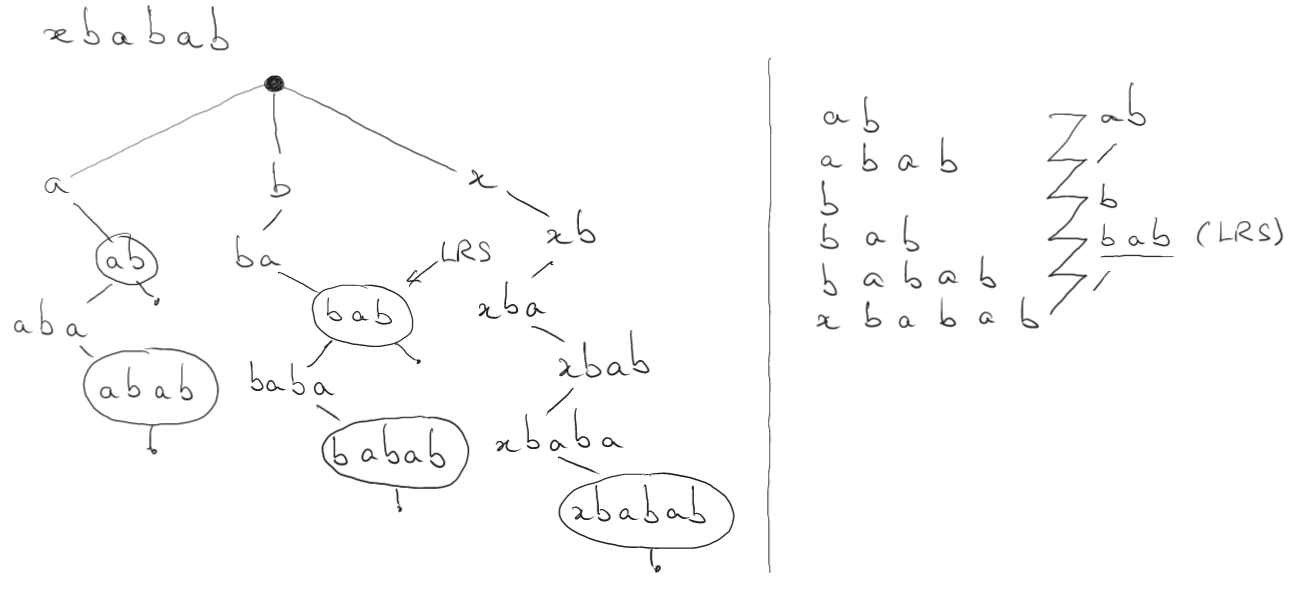 xbabab
a
b
x
ab
ba
LRS
xb
aba
bab
xba
abab
baba
xbab
babab
xbaba
xbabab
ab
abab
b
bab
babab
xbabab
ab
/
b
bab (LRS)
/